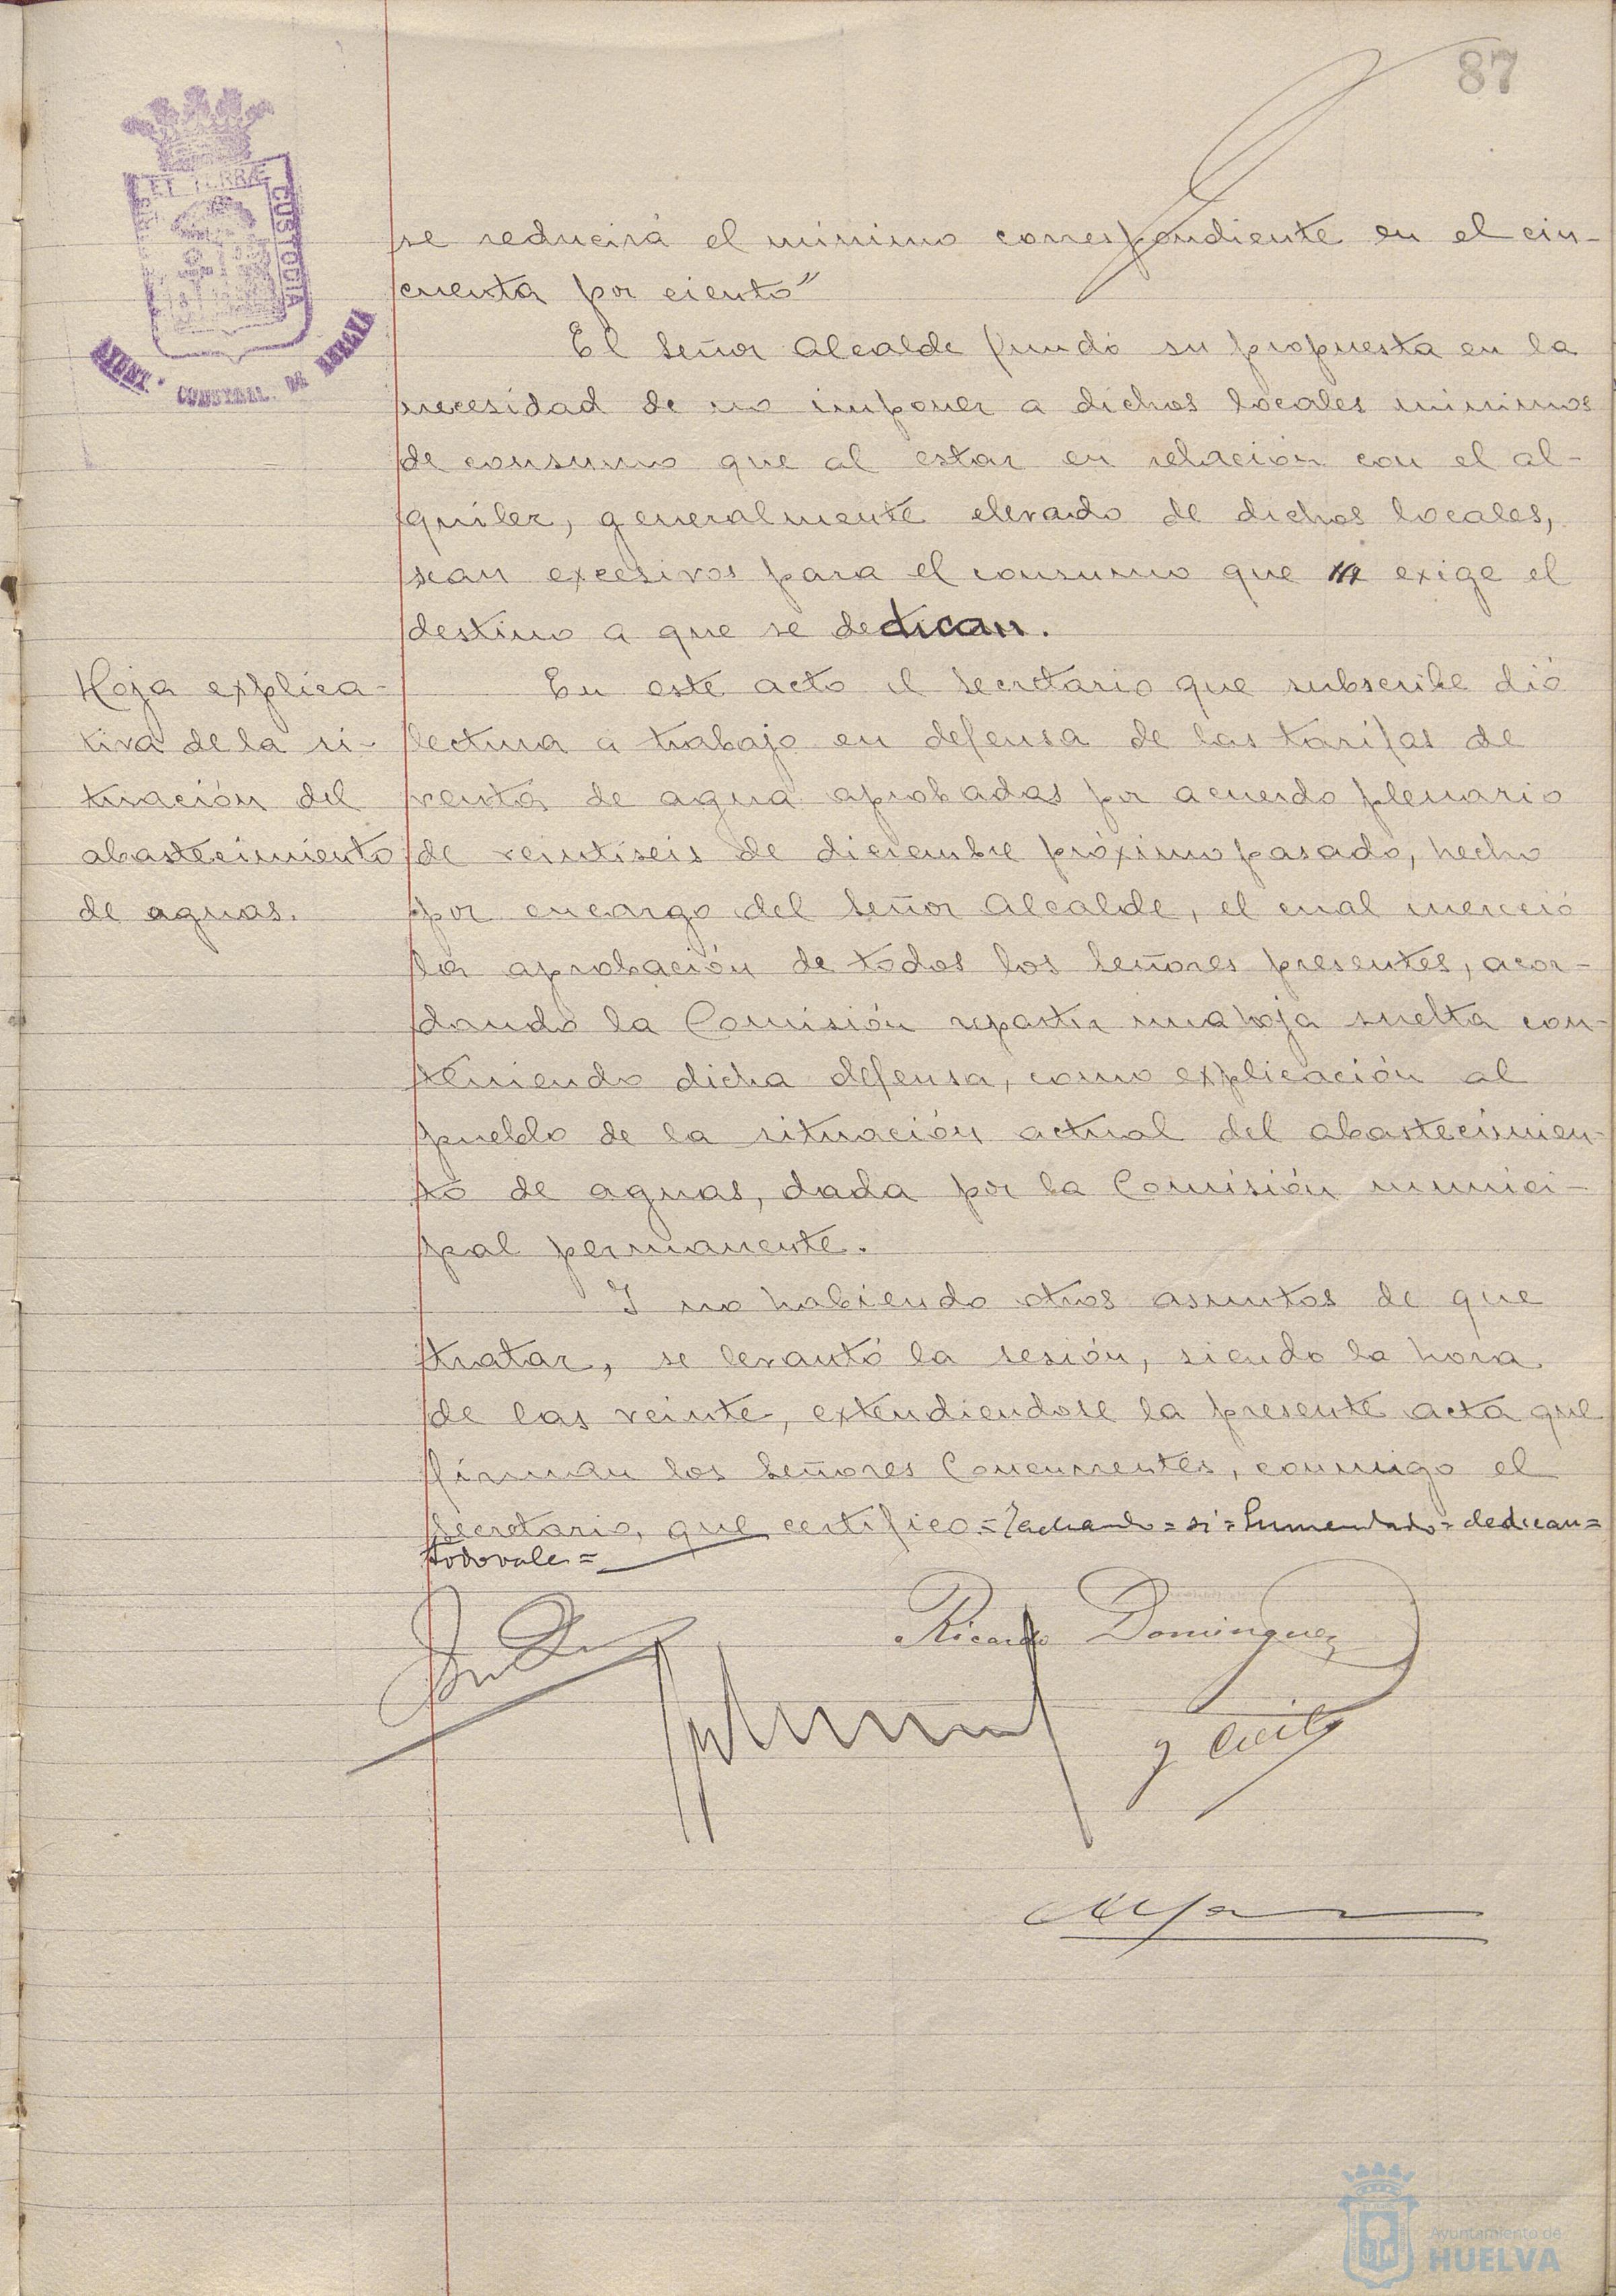 87
ET TERRÆ
CUSTODIA
AYUNT. CONSTNAL. DE HUELVA
se reducirá el mínimo correspondiente en el cin-
cuenta por ciento"
El Señor Alcalde fundó su propuesta en la
necesidad de no imponer a dichos locales mínimos
de consumo que al estar en relación con el al-
quiler, generalmente elevado de dichos locales,
sean excesivos para el consumo que exige el
destino a que se dedican.
Hoja explica-
tiva de la si-
tuación del
abastecimiento
de aguas.
En este acto el Secretario que subscribe dió
lectura a trabajo en defensa de las tarifas de
venta de agua aprobadas por acuerdo plenario
de veintiseis de diciembre próximo pasado, hecho
por encargo del Señor Alcalde, el cual mereció
la aprobación de todos los Señores presentes, acor-
dando la Comisión repartir una hoja suelta con-
teniendo dicha defensa, como explicación al
pueblo de la situación actual del abastecimien-
to de aguas, dada por la Comisión munici-
pal permanente.
Y no habiendo otros asuntos de que
tratar, se levantó la sesión, siendo la hora
de las veinte, extendiendose la presente acta que
firman los Señores Concurrentes, conmigo el
Secretario, que certifico = Tachado = si = Enmendado = dedican =
todo vale =
Ricardo Dominguez
Ayuntamiento de
HUELVA